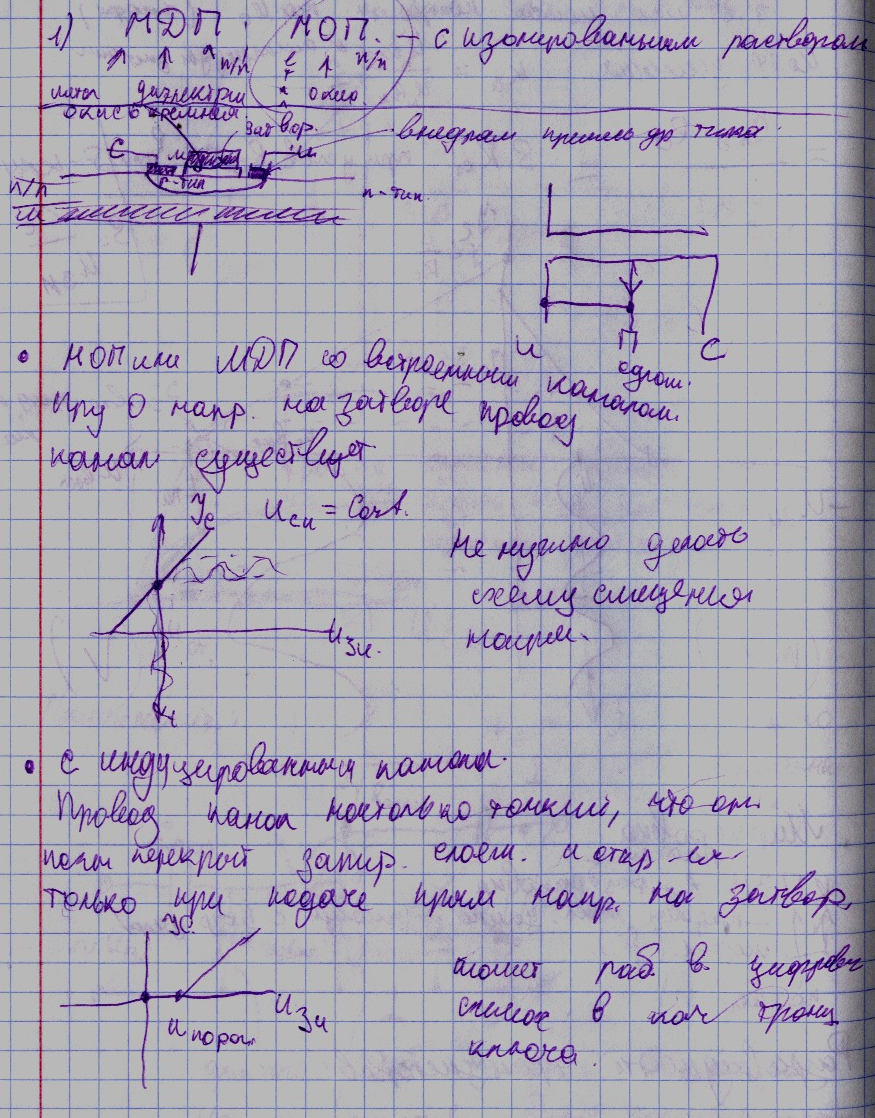 1) МДП. МОП. – с изолированным раствором
п/п п/п
метал диэлектрик окис.
окись кремния.
затвор. внедрям примесь др типа.
С М и
п/п p-тип n-тип.
м
и П С
• МОП или МДП со встроенным каналом.
При 0 напр. на затворе провод
канал существует
Ic Uси = Const.
Не нужно делать
схему смещения
Uзи.
• С индуцированным каналом.
Провод канал настолько тонкий, что он
перекрыт запир. слоем. и откр-ся
только при подаче прям напр. на затвор.
Ic
может раб. в цифровых
Uзи схемах в кач транз
Uпорог. ключа.